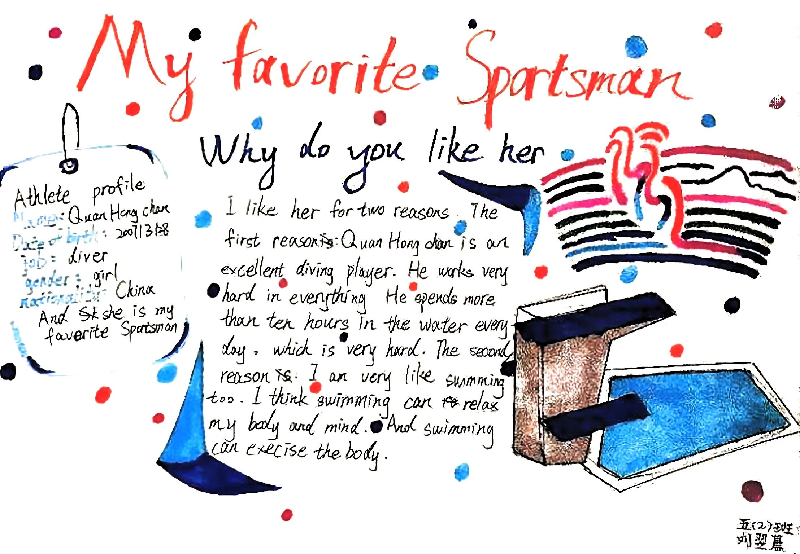 My favorite Sportsman
Why do you like her
Athlete profile
Name: Quan Hong chan
Date of birth: 2007/3/28
job: diver
gender: girl
nationality: China
And she is my
favorite Sportsman
I like her for two reasons. The
first reason is: Quan Hong chan is an
excellent diving player. He works very
hard in everything He spends more
than ten hours in the water every
day, which is very hard. The second
reason is: I am very like summing
too. I think swimming can relax
my body and mind. And swimming
can execise the body.
五(2)班
刘翌菡